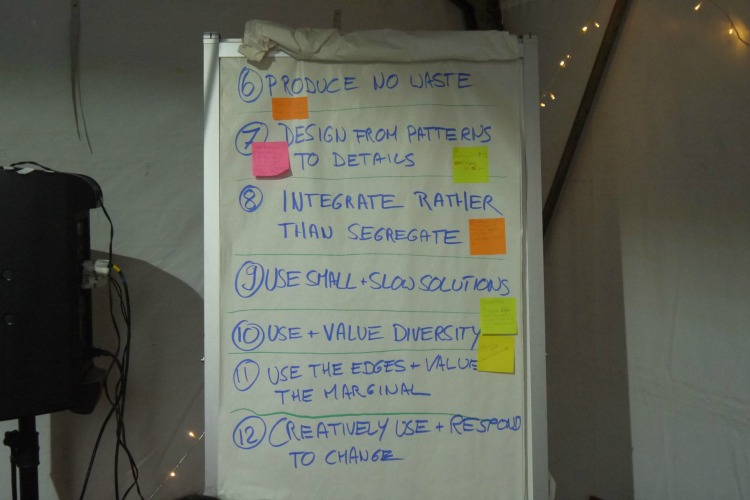 6 PRODUCE NO WASTE
7 DESIGN FROM PATTERNS
TO DETAILS
8 INTEGRATE RATHER
THAN SEGREGATE
9 USE SMALL + SLOW SOLUTIONS
10 USE + VALUE DIVERSITY
11 USE THE EDGES + VALUE
THE MARGINAL
12 CREATIVELY USE + RESPOND
TO CHANGE